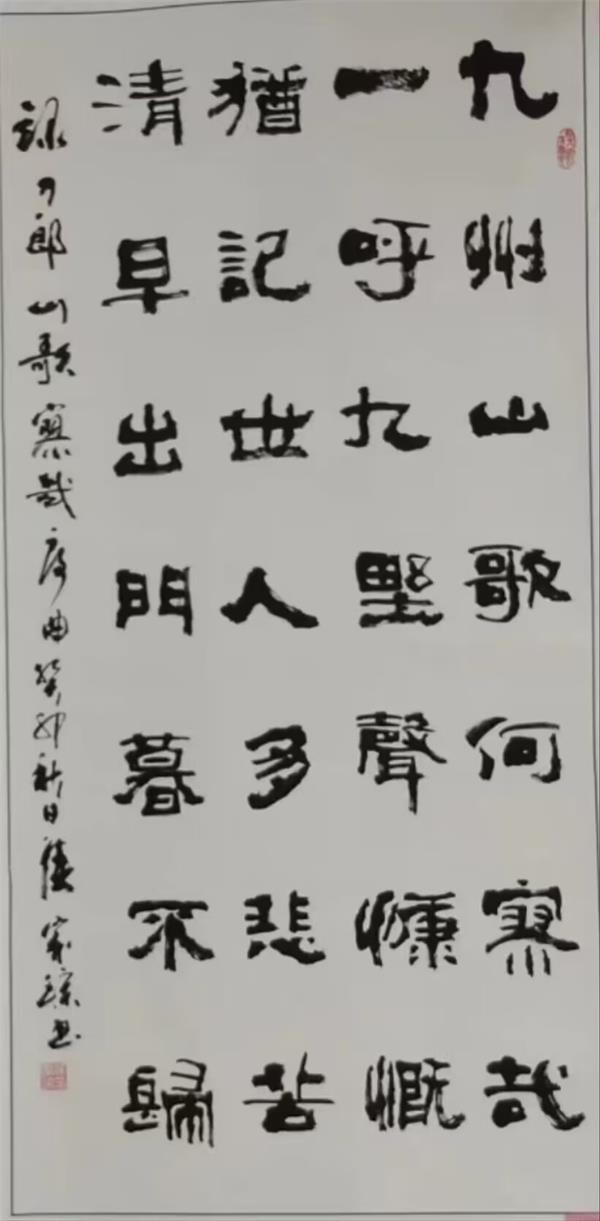 九州山歌何寥哉
一呼九野聲慷慨
猶記世人多悲苦
清早出門暮不歸
詠刀郎山歌寥哉序曲癸卯秋日家書